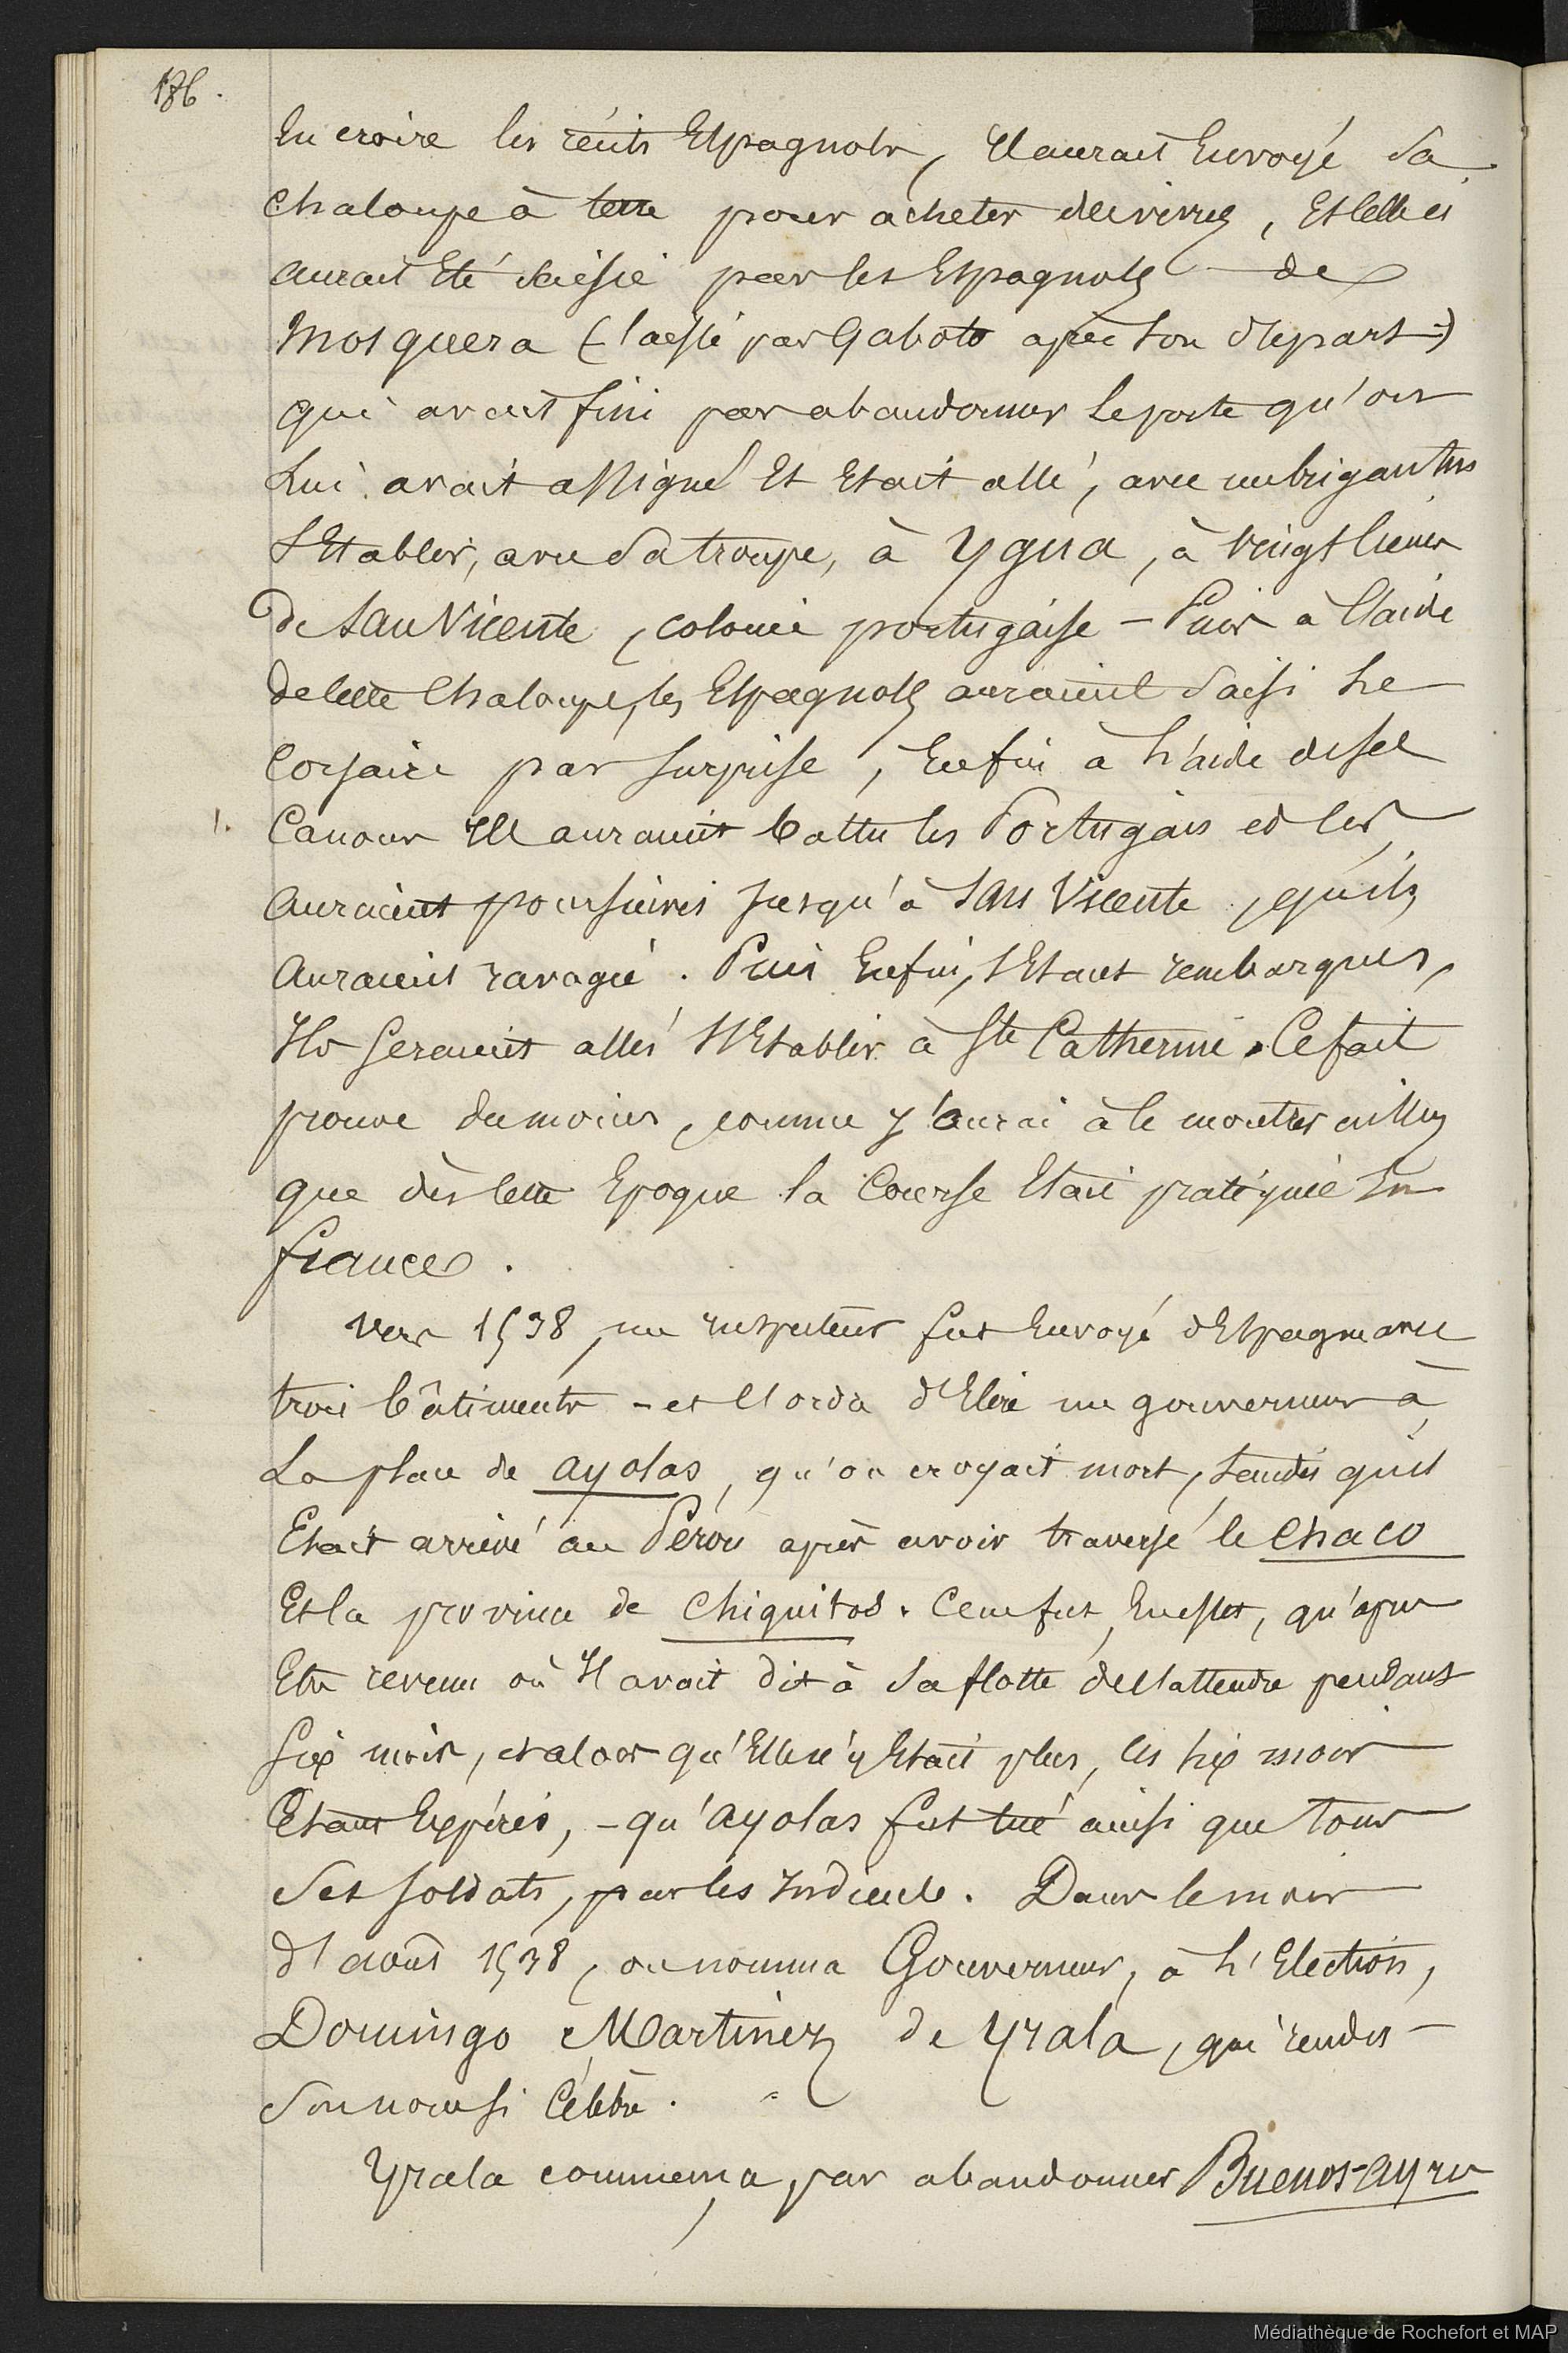 186.
En croire les récits Espagnols, Il aurait Envoyé sa
chaloupe à terre pour acheter des vivres, Et celle ci
aurait Eté saisie par les Espagnols de
Mosquera (laissé par Gaboto après son départ)
qui avait fini par abandonner le poste qu'on
Lui avait assigné Et Etait allé, avec un brigantin
s'Etablir, avec sa troupe, à Ygua, à vingt lieues
de San Vicente, colonie portugaise - Puis à l'aide
de cette Chaloupe, les Espagnols auraient saisi le
Corsaire par surprise, Enfin à l'aide de ses
1. Canons Ils auraient battu les Portugais et les
auraient poursuivis jusqu'à San Vicente, qu'ils
auraient ravagé. Puis Enfin, s'Etant rembarqués,
Ils seraient allés s'Etablir à Ste Catherine. Ce fait
prouve du moins, comme j'aurai à le montrer ailleurs
que dès cette Epoque la Course Etait pratiquée En
france.
Vers 1538, un inspecteur fut Envoyé d'Espagne avec
trois bâtiments - et d'Elire un gouverneur à
La place de Ayolas, qu'on croyait mort, tandis qu'il
Etait arrivé au Pérou après avoir traversé le Chaco
Et la province de Chiquitos. Ce ne fut, En effet, qu'après
Etre revenu où Il avait dit à sa flotte de l'attendre pendant
six mois, et alors qu'Elle n'y Etait plus, les six mois
Etant Expirés, - qu'Ayolas fut tué ainsi que tous
Ses soldats, par les Indiens. Dans le mois
d'août 1538, on nomma Gouverneur, à l'Election,
Domingo Martinez de Yrala, qui rendit
son nom si Célèbre.
Yrala commença par abandonner Buenos-Ayres
Médiathèque de Rochefort et MAP